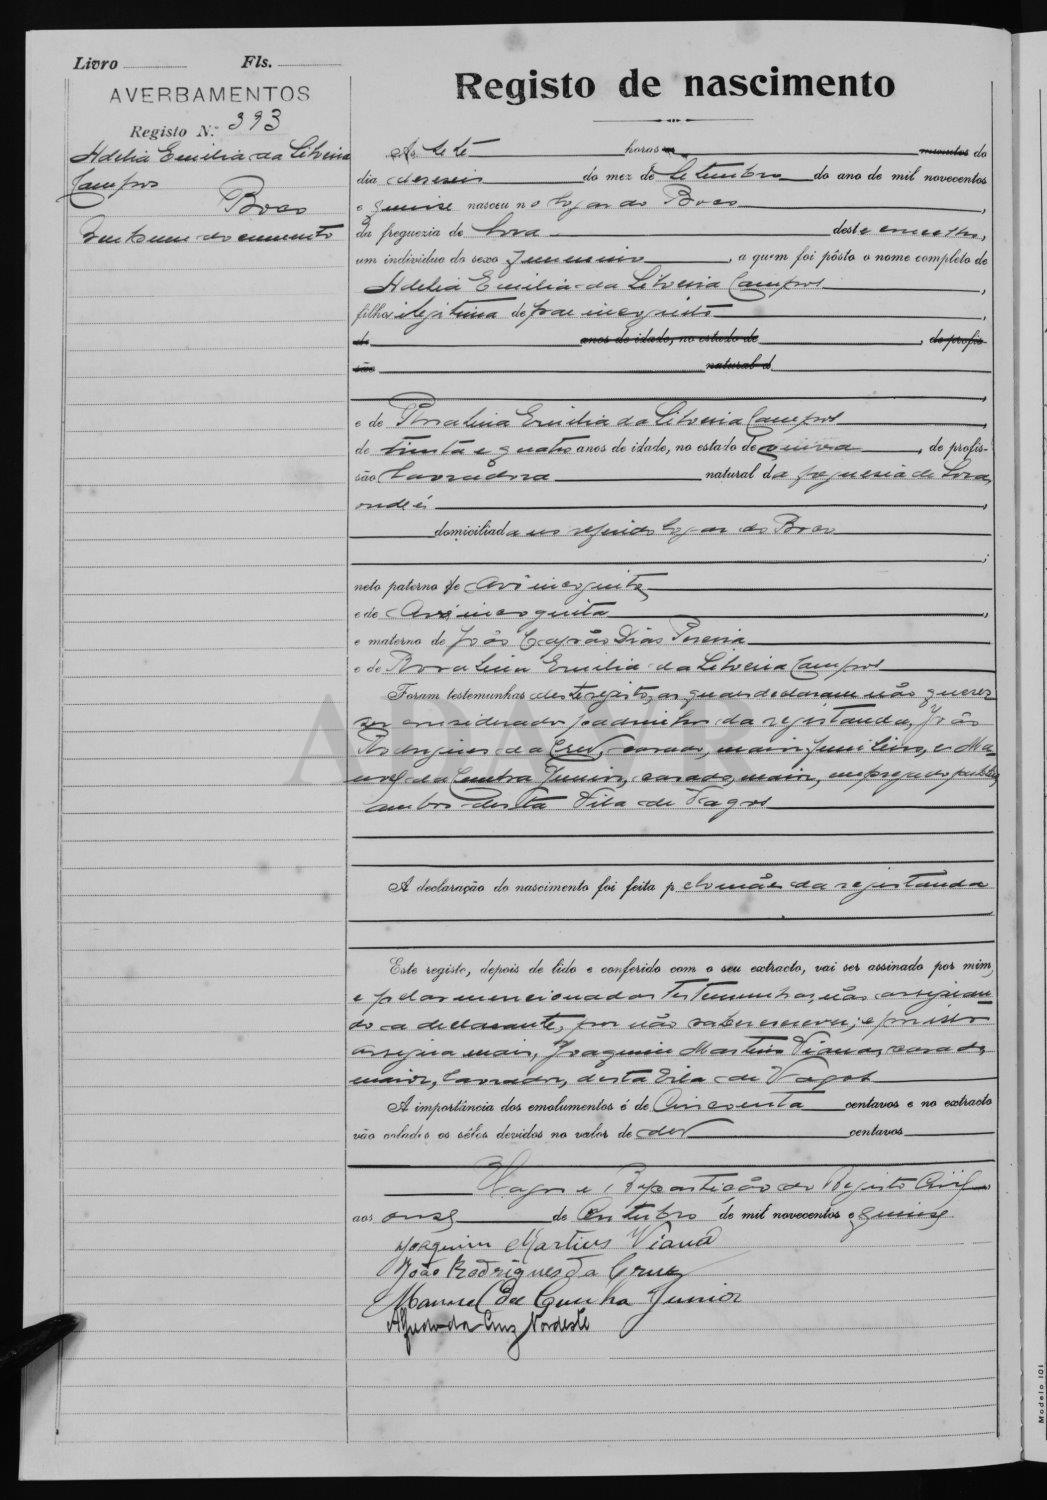 Livro Fls.
AVERBAMENTOS
Registo N.º 393
Adelia Emilia da Silveira
Campos
Boco
Tem um documento
Registo de nascimento
Ás sete horas e minutos do
dia dezeseis do mez de Setembro do ano de mil novecentos
e quinze nasceu no logar do Boco
da freguezia de Sosa deste concelho,
um individuo do sexo feminino, a quem foi pôsto o nome completo de
Adelia Emilia da Silveira Campos,
filha ilegitima de pae incognito,
de anos de idade, no estado de, de profis-
são natural d
e de Rosalina Emilia da Silveira Campos,
de trinta e quatro anos de idade, no estado de viuva, de profis-
são lavradora natural da freguesia de Sosa,
onde é
domiciliada no referido logar do Boco
;
neto paterno de avô incognito
e de avó incognita,
e materno de João Dias Pereira
e de Rosalina Emilia da Silveira Campos
Foram testemunhas deste registo, as quaes declaram não querer
ser considerados padrinhos da registanda, João
Rodrigues da Cruz, casado, maior, funileiro, e Ma-
nuel da Cunha Junior, casado, maior, empregado publico,
ambos desta Vila de Vagos
A declaração do nascimento foi feita pela mãe da registanda
Este registo, depois de lido e conferido com o seu extracto, vai ser assinado por mim,
e pelas mencionadas testemunhas, não assignan-
do a declarante, por não saber escrever; e por isso
assigna mais, Joaquim Martins Viana, casado,
maior, lavrador, desta Vila de Vagos
A importância dos emolumentos é de Cincoenta centavos e no extracto
vão colados os sêlos devidos no valor de dez centavos
Vagos e Repartição do Registo Civil
aos onze de Outubro de mil novecentos e quinze
Joaquim Martins Viana
João Rodrigues da Cruz
Manuel da Cunha Junior
Alfredo da Cruz Nordeste
ADAVR
Modelo 101